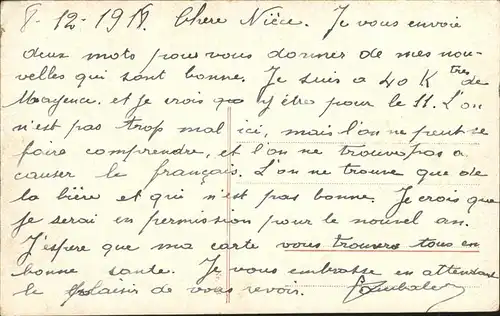 8-12-1918. Chere Nièce. Je vous envoie
deux mots pour vous donner de mes nou-
velles qui sont bonne. Je suis a 40 K tres de
Mayence. et je crois que y être pour le 11. L'on
n'est pas trop mal ici, mais l'on ne peut se
faire comprendre, et l'on ne trouve pas a
causer le français. L'on ne trouve que de
la bière et qui n'est pas bonne. Je crois que
je serai en permission pour le nouvel an.
J'espere que ma carte vous trouvera tous en
bonne sante. Je vous embrasse en attendant
le plaisir de vous revoir.